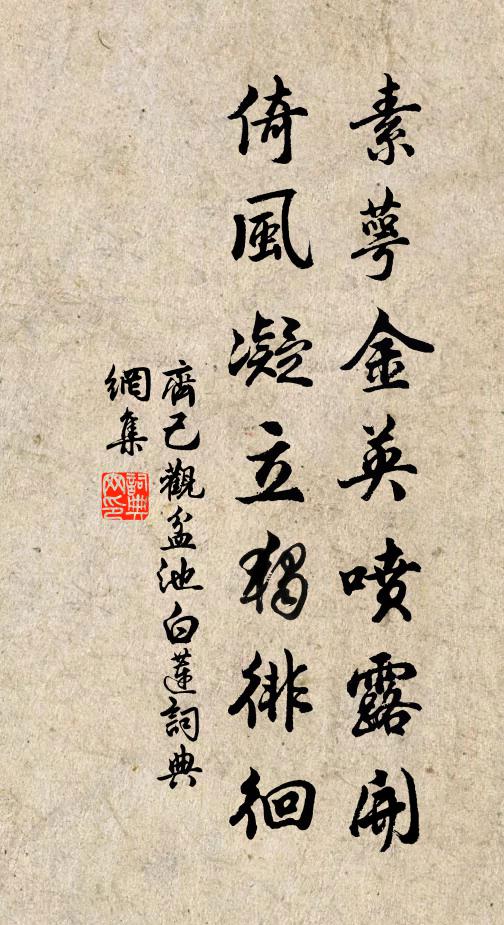 素萼金英噴露開
倚風凝立獨徘徊
齊己觀盆池白蓮詞典
網集
詞典
網印